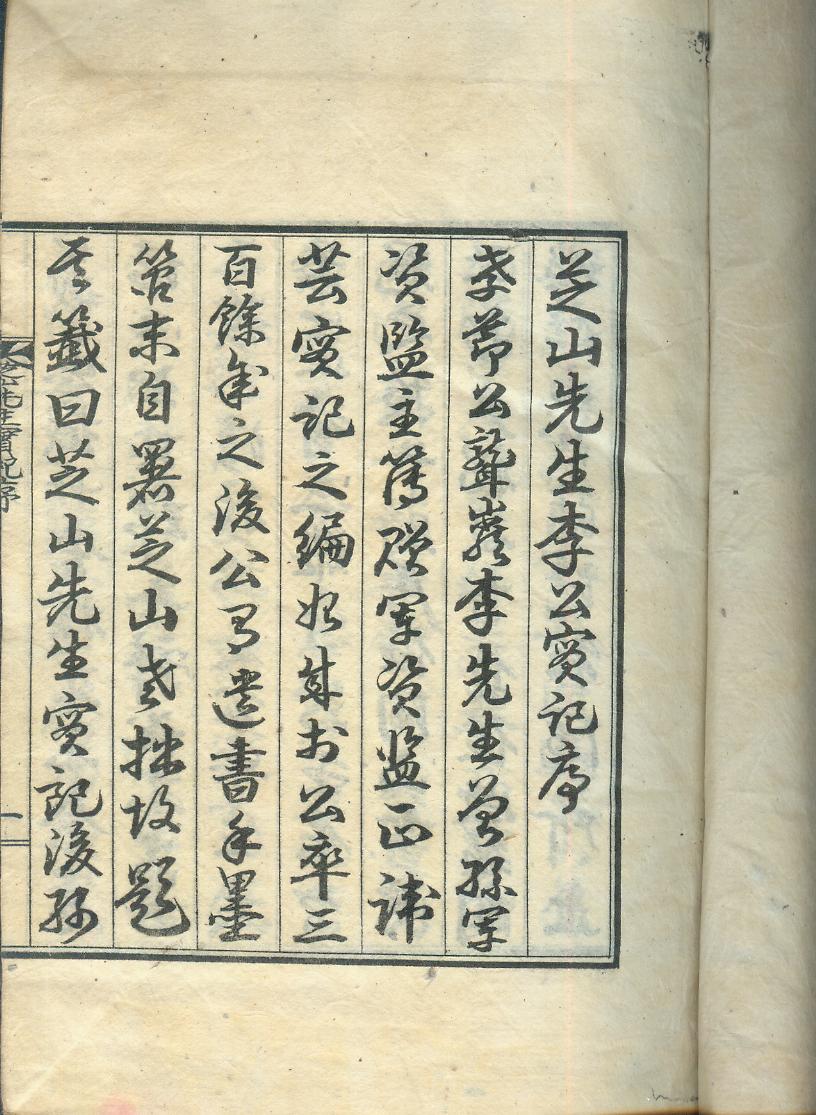 芝山先生李公實記序
孝節公聾巖李先生曾孫軍
資監主簿贈軍資監正諱
芸實記之編始成於公卒三
百餘年之後公有遺書手墨
箚末自署芝山老拙故題
其籤曰芝山先生實記後孫
芝山先生實記序
一